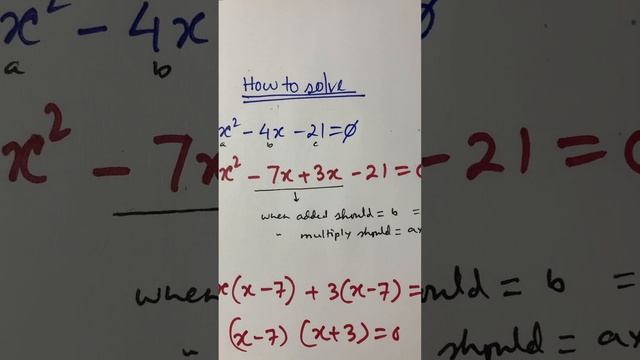 How to solve
x² - 4x - 21 = 0
a b c
x² - 7x + 3x - 21 = 0
↓
when added should = b =
" multiply should = ax
x(x-7) + 3(x-7) =
(x-7) (x+3) = 0